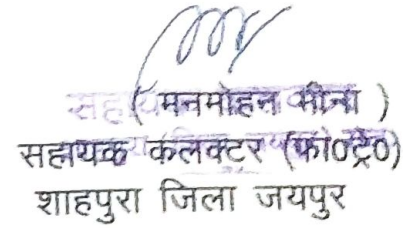 (मनमोहन मीना)
सहायक कलक्टर (फा०ट्रै०)
शाहपुरा जिला जयपुर